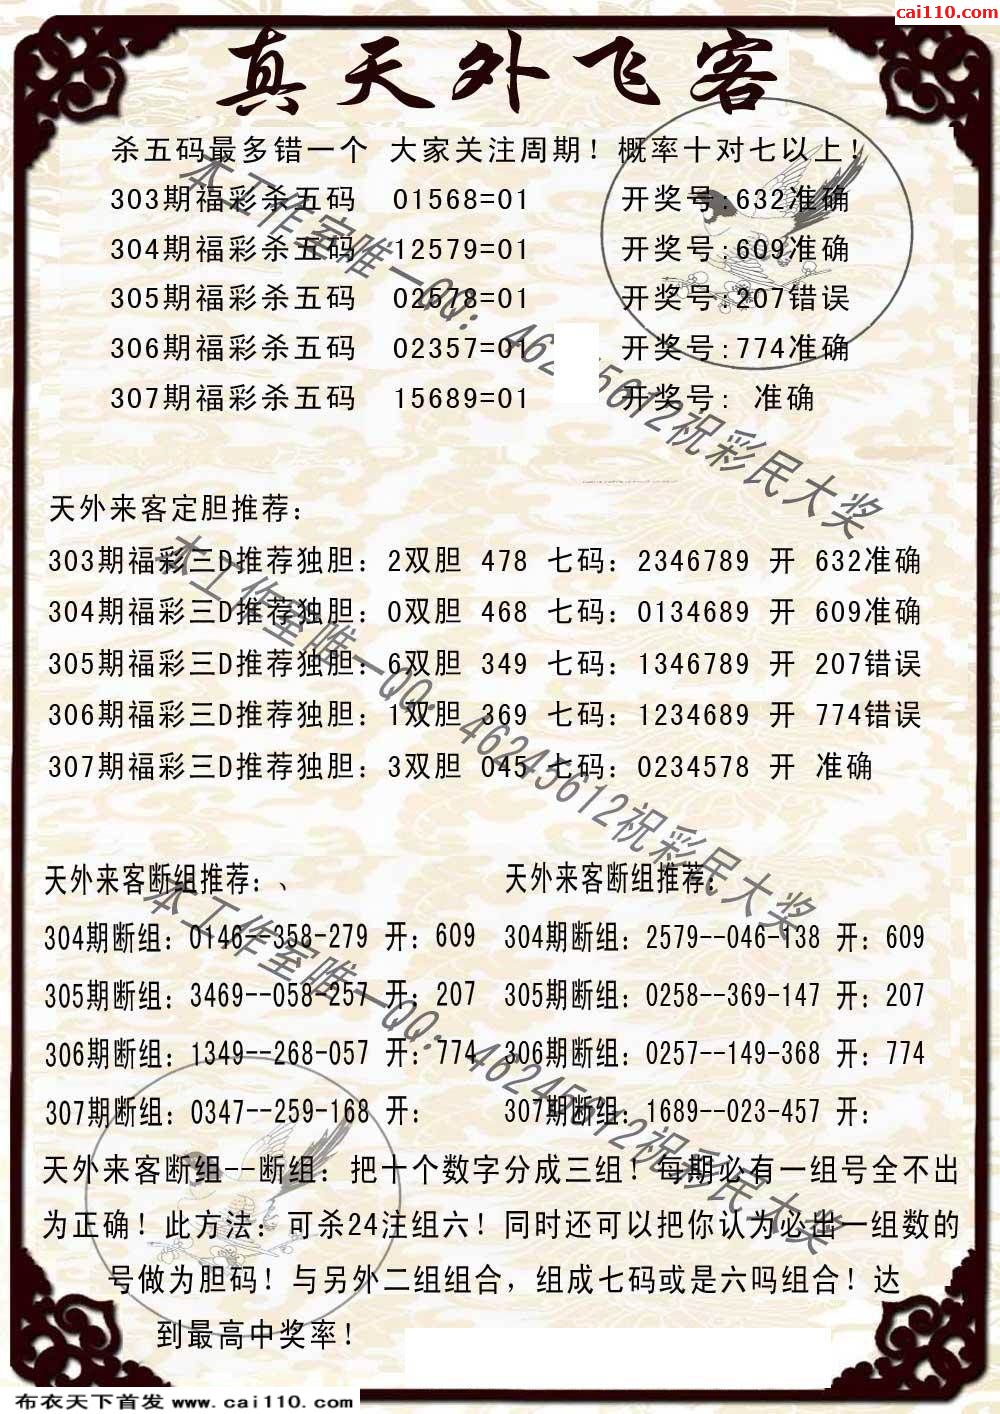 cai110.com
真天外飞客
杀五码最多错一个 大家关注周期！概率十对七以上！
303期福彩杀五码 01568=01 开奖号:632准确
304期福彩杀五码 12579=01 开奖号:609准确
305期福彩杀五码 02578=01 开奖号:207错误
306期福彩杀五码 02357=01 开奖号:774准确
307期福彩杀五码 15689=01 开奖号: 准确
本工作室唯一QQ：462 5612祝彩民大奖
天外来客定胆推荐：
303期福彩三D推荐独胆：2双胆 478 七码：2346789 开 632准确
304期福彩三D推荐独胆：0双胆 468 七码：0134689 开 609准确
305期福彩三D推荐独胆：6双胆 349 七码：1346789 开 207错误
306期福彩三D推荐独胆：1双胆 369 七码：1234689 开 774错误
307期福彩三D推荐独胆：3双胆 045 七码：0234578 开 准确
本工作室唯一QQ：46245612祝彩民大奖
天外来客断组推荐：、
304期断组：0146--358-279 开：609
305期断组：3469--058-257 开：207
306期断组：1349--268-057 开：774
307期断组：0347--259-168 开：
天外来客断组推荐：
304期断组：2579--046-138 开：609
305期断组：0258--369-147 开：207
306期断组：0257--149-368 开：774
307期断组：1689--023-457 开：
本工作室唯一QQ：46245612祝彩民大奖
天外来客断组--断组：把十个数字分成三组！每期必有一组号全不出
为正确！此方法：可杀24注组六！同时还可以把你认为必出一组数的
号做为胆码！与另外二组组合，组成七码或是六吗组合！达
到最高中奖率！
布衣天下首发 www.cai110.com